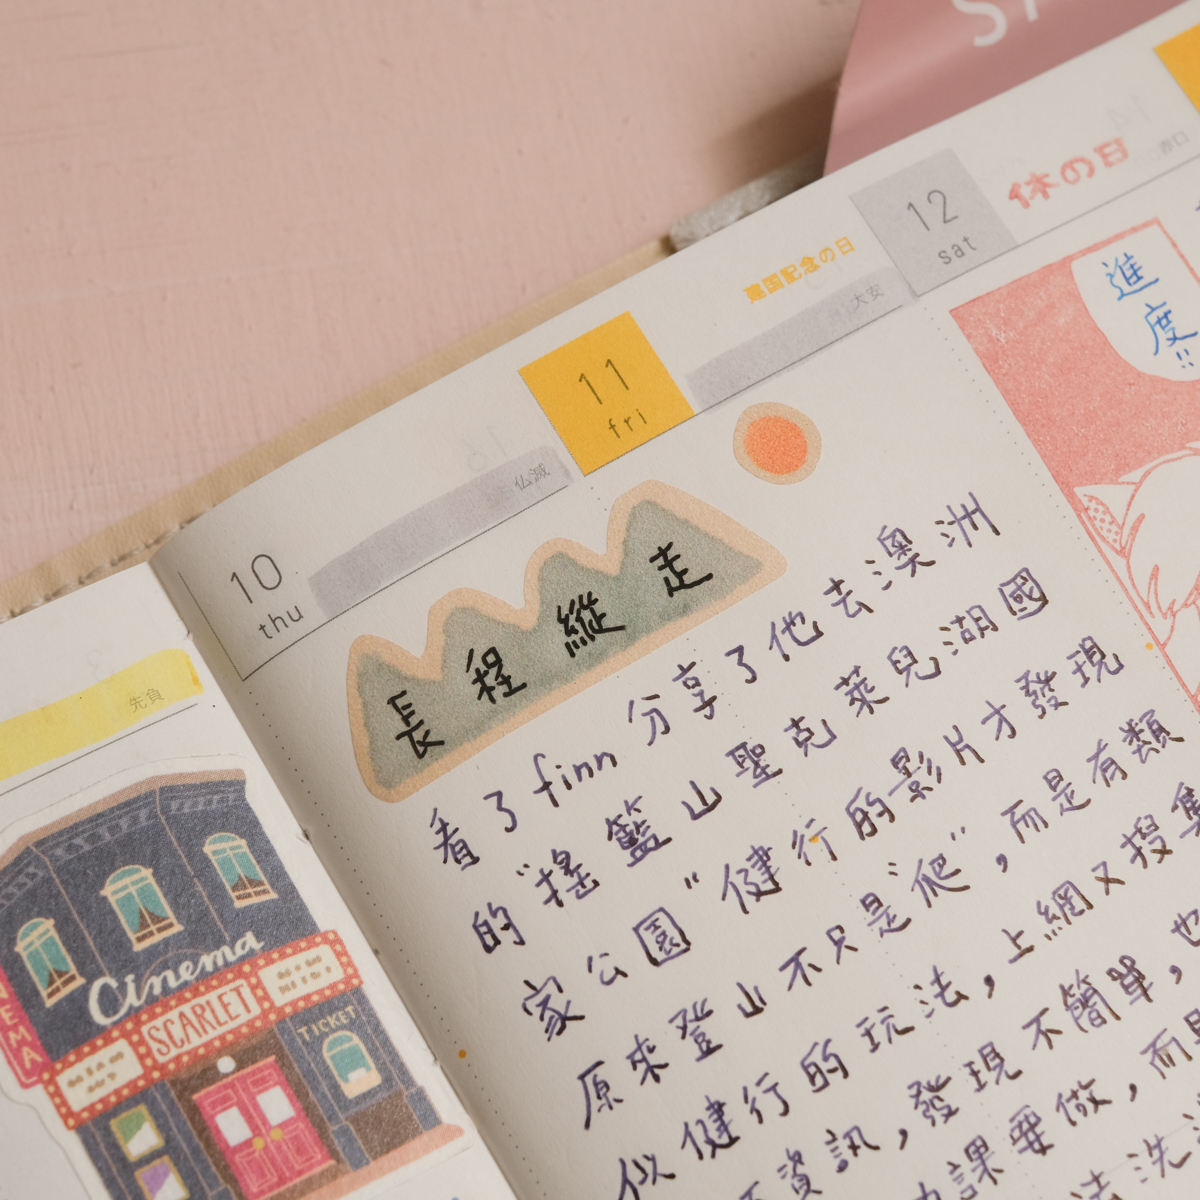 12
sat
休の日
赤口
建国記念の日
大安
進
度!!
11
fri
仏滅
10
thu
先負
長程縱走
看了finn分享了他去澳洲
的"搖籃山聖克萊兒湖國
家公園"健行的影片才發現
原來登山不只是"爬",而是有類
似健行的玩法,上網又搜集
資訊,發現不簡單,也
課要做,而
法洗
Cinema
SCARLET
TICKET
NEMA